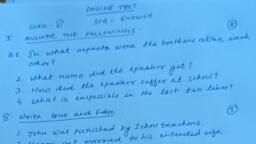 ONLINE TEST
CLASS - 8 SUB - ENGLISH
I ANSWER THE FOLLOWINGS. (8)
Q1. In what aspects were the brothers alike each other?
2. What name did the speaker get?
3. How did the speaker suffer at school?
4 What is impossible in the last two lines?
Write true and false (5)
1. John was punished by School teachers.
got married to his intended wife.